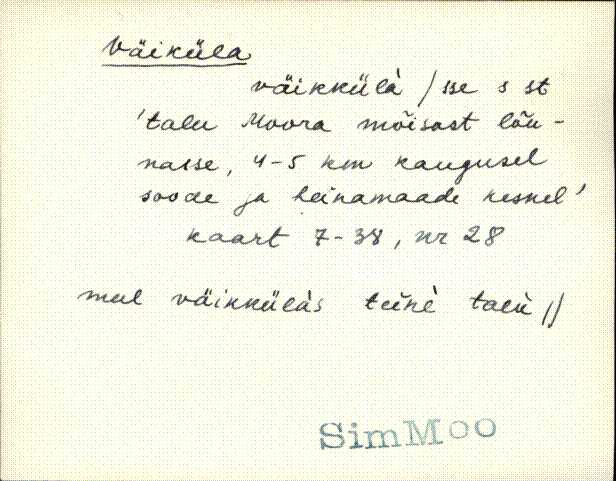 Väiküla
väikkülà /sse s st
'talu Moora mõisast lõu-
nasse, 4-5 km kaugusel
soode ja heinamaade keskel'
kaart 7-38, nr 28
mul väikküläs teine talu //
SimMoo